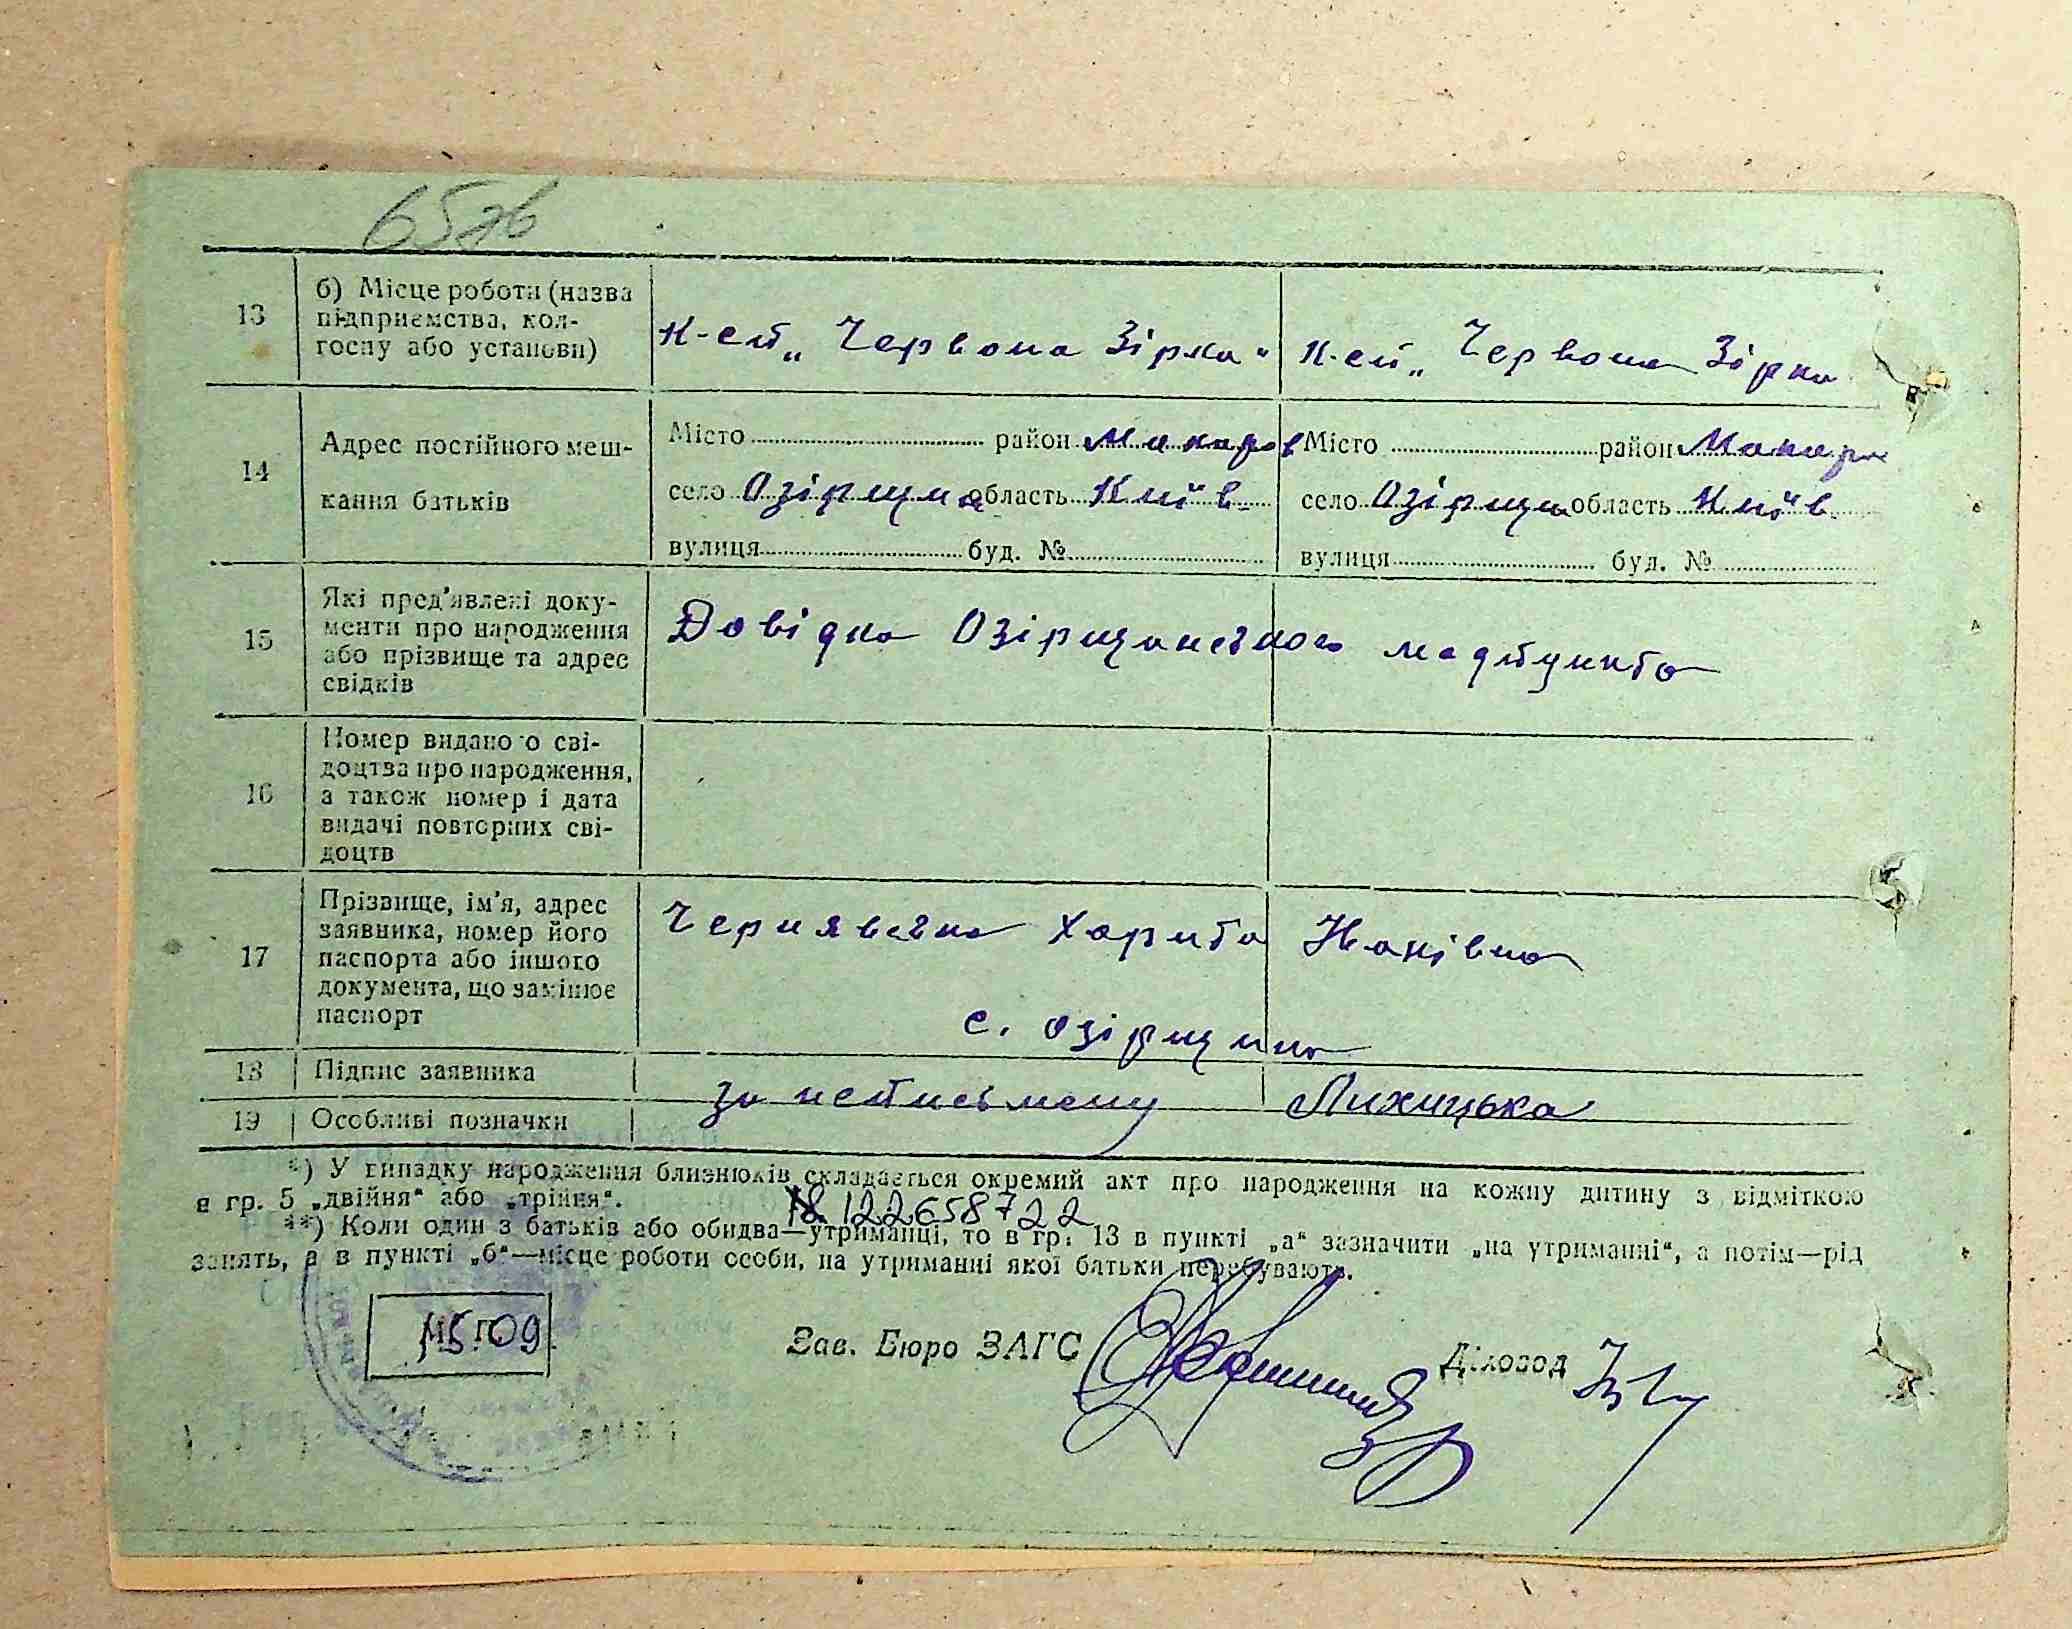 65 зв
13
б) Місце роботи (назва
підприємства, кол-
госпу або установи)
к-сп „Червона Зірка“
к-сп „Червона Зірка
14
Адрес постійного меш-
кання батьків
Місто район Макаров
село Озірщина область Київ.
вулиця буд. №
Місто район Макаров
село Озірщина область Київ.
вулиця буд. №
15
Які пред'явлені доку-
менти про народження
або прізвище та адрес
свідків
Довідка Озірщанського медпункта
16
Номер виданого сві-
доцтва про народження,
а також номер і дата
видачі повторних сві-
доцтв
17
Прізвище, ім'я, адрес
заявника, номер його
паспорта або іншого
документа, що замінює
паспорт
Чернявська Харита Іванівна
с. Озірщина
18
Підпис заявника
за неписьмену Лихицька
19
Особливі позначки
*) У випадку народження близнюків складається окремий акт про народження на кожну дитину з відміткою
в гр. 5 „двійня“ або „трійня“.
122658722
**) Коли один з батьків або обидва—утриманці, то в гр. 13 в пункті „а“ зазначити „на утриманні“, а потім—рід
занять, а в пункті „б“—місце роботи особи, на утриманні якої батьки перебувають.
М. П.
Зав. Бюро ЗАГС
Діловод